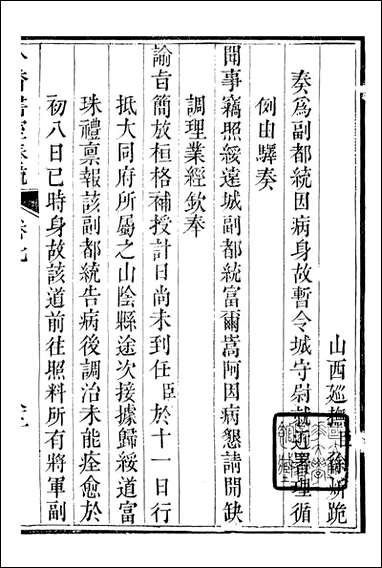 山西廵撫臣徐炘跪
奏爲副都統因病身故暫令城守尉就近署理循
例由驛奏
聞事竊照綏遠城副都統富爾嵩阿因病懇請開缺
調理業經欽奉
諭旨簡放桓格補授計日尚未到任臣於十一日行
抵大同府所屬之山陰縣途次接據歸綏道富
珠禮禀報該副都統告病後調治未能痊愈於
初八日巳時身故該道前往照料所有將軍副
卷七